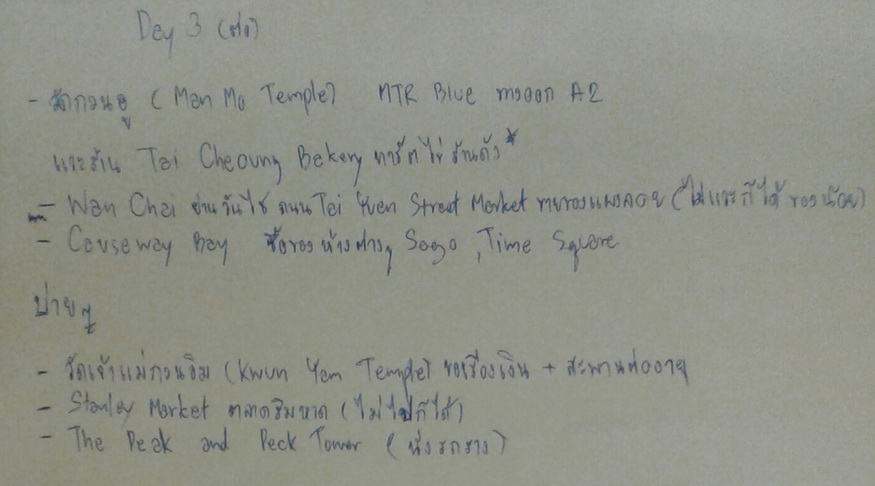 Day 3 (ต่อ)
- วัดกวนอู (Man Mo Temple) MTR Blue ทางออก A2
แวะร้าน Tai Cheoung Bakery ทาร์ตไข่ร้านดัง*
- Wan Chai ย่านวันไช ถนน Tai Yuen Street Market ขายของแผงลอย (ไม่แวะก็ได้ ของน้อย)
- Causeway Bay ซื้อของห้างต่างๆ Sogo, Time Square
บ่ายๆ
- วัดเจ้าแม่กวนอิม (Kwun Yam Temple) ขอเรื่องเงิน + สะพานต่ออายุ
- Stanley Market ตลาดริมหาด (ไม่ไปก็ได้)
- The Peak and Peck Tower (นั่งรถราง)